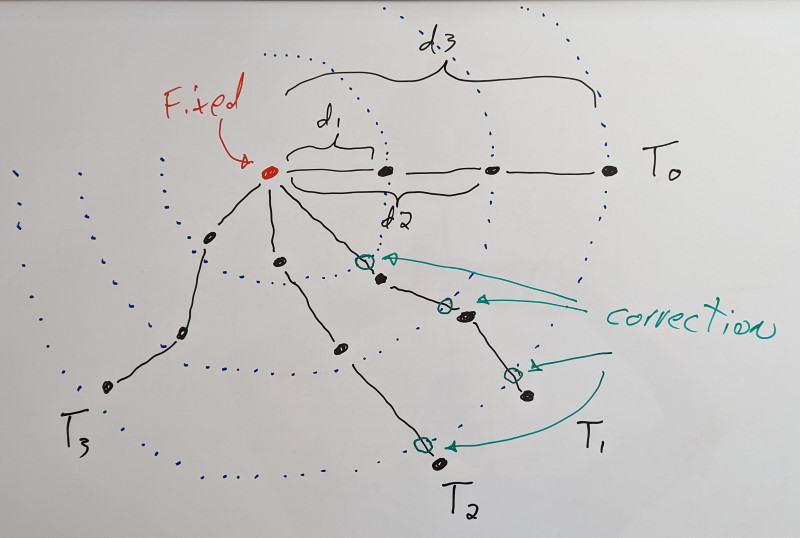 d3
Fixed
d1
T0
d2
correction
T3
T1
T2